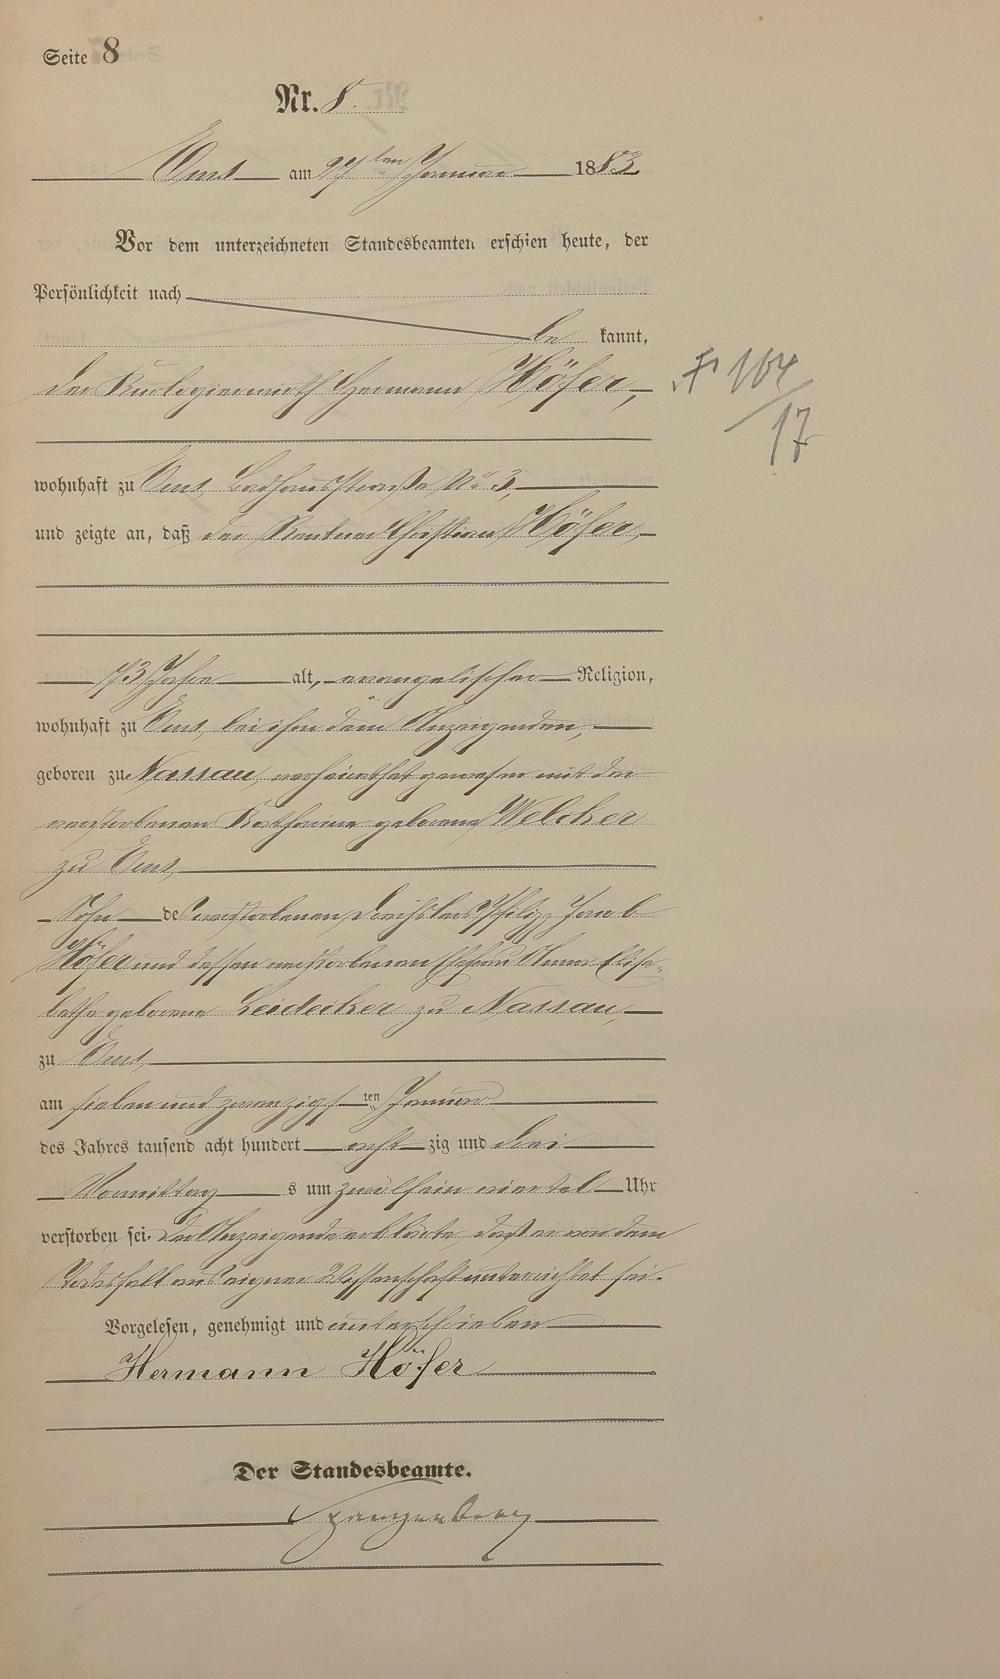 Seite 8
Nr. 8.
Ems am 27ten Januar 1883
Vor dem unterzeichneten Standesbeamten erschien heute, der
Persönlichkeit nach
be kannt,
der Kurlogierwirth Hermann Höfer,
F 104
17
wohnhaft zu Ems, Badhausstraße No 3,
und zeigte an, daß der Rentner Christian Höfer,
73 Jahre alt, evangelischer Religion,
wohnhaft zu Ems, bei ihm dem Anzeigenden,
geboren zu Nassau, verheirathet gewesen mit der
verstorbenen Katharine geborene Welcker
zu Ems,
Sohn des verstorbenen Philipp Jacob
Höfer und dessen verstorbenen Ehefrau Anna Elisa-
betha geborene Leidecker zu Nassau,
zu Ems,
am sieben und zwanzigsten Januar
des Jahres tausend acht hundert acht zig und drei
Vormittags um zwölf ein viertel Uhr
verstorben sei. Der Anzeigende erklärte, daß er von dem
Todesfall aus eigner Wissenschaft unterrichtet sei.
Vorgelesen, genehmigt und unterschrieben
Hermann Höfer
Der Standesbeamte.
Spangenberg